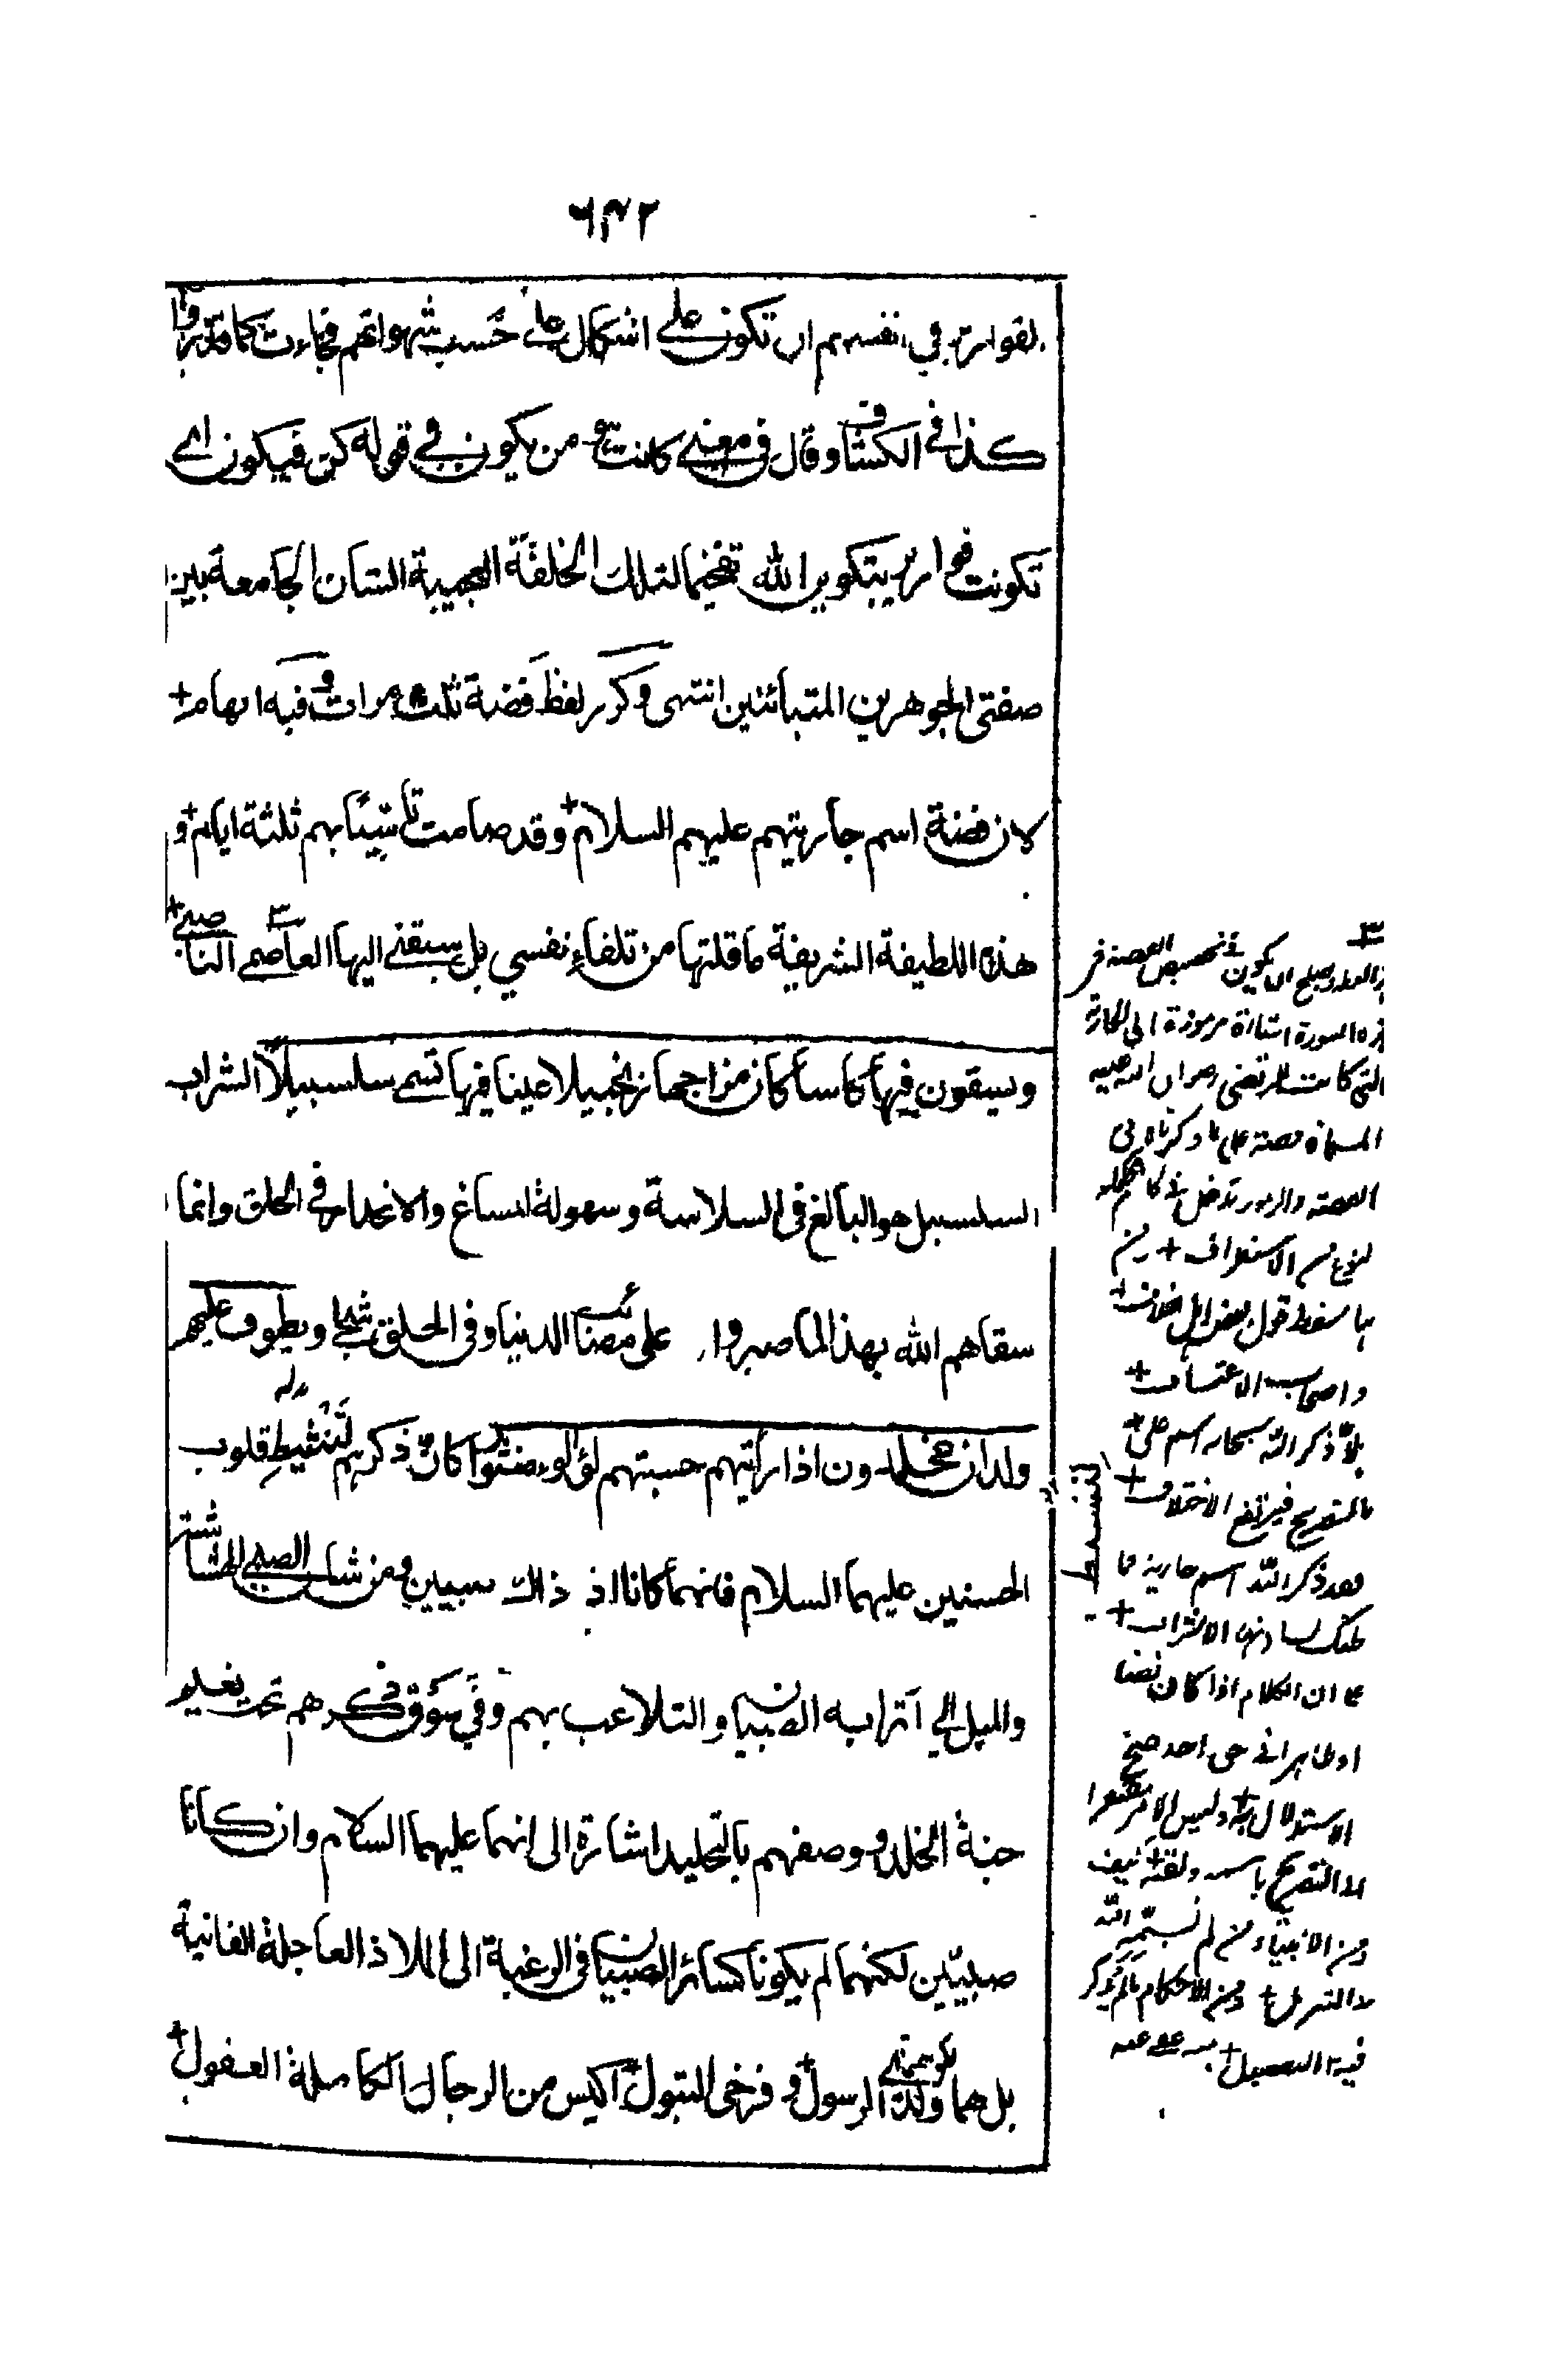 ٦٤٢
القوارير في انفسهم ان تكون على اشكال على حسب شهواتهم فجاءت كما قدروا
كذا في الكشاف وقال في معنى كانت هو من يكون في قوله كن فيكون اى
تكونت قوارير بتكوين الله تفخيما لتلك الخلقة العجيبة الشان الجامعة بين
صفتى الجوهرين المتبائنين انتهى وكرر لفظ فضة ثلث مرات وفيه ابهام+
لان فضة اسم جاريتهم عليهم السلام+ وقد صامت تأسيًا بهم ثلثة ايام+ و
هذه اللطيفة الشريفة ما قلتها من تلقاء نفسي بل سبقني اليها العاصمي الناصبي+
ويسقون فيها كاسا كان مزاجها زنجبيلا عينا فيها تسمى سلسبيلًا الشراب
السلسبيل هو البالغ في السلاسة وسهولة المساغ والانحدار في الحلق وانما
سقاهم الله بهذا لما صبروا على مصائب الدنيا وفي الحلق شجا ويطوف عليهم
ولدان مخلدون اذا رأتيهم حسبتهم لؤلؤا منثورا كان ذكرهم لتنشيط قلوب
الحسنين عليهما السلام فانهما كانا اذ ذاك صبيين ومن شان الصبي الهشاشة
والميل الى اترابه الصبيان والتلاعب بهم وفي سوق ذكرهم تحت نعيم
جنة الخلد ووصفهم بالتخليد اشارة الى انهما عليهما السلام وان كانا
صبيّين لكنهما لم يكونا كسائر الصبيان في الرغبة الى الملاذ العاجلة الفانية
بل هما ولدا الرسول+ و فرخى البتول+ اكيس من الرجال الكاملة العقول+
ان يكون في تخصيص الفضة في
هذه السورة اشارة مرموزة الى الجارية
التي كانت للمرتضى رضوان الله عليه
المسماة فضة على ما ذكرناه في
لنوع من الاستطراف+ ومن
سقط قول بعض اهل الخلاف+
واصحاب الاعتساف+
هلا ذكر الله سبحانه اسم على+
بالتصريح فيرتفع الاختلاف+
فقد ذكر الله اسم جارية
ان الكلام اذا كان نصا
او ظاهرا في حق احد صح
الاستدلال به+ وليس الامر مقصورا
ومن الانبياء من لم يسمّه الله
ومن الاحكام ما لم يذكر
فيه التفصيل+